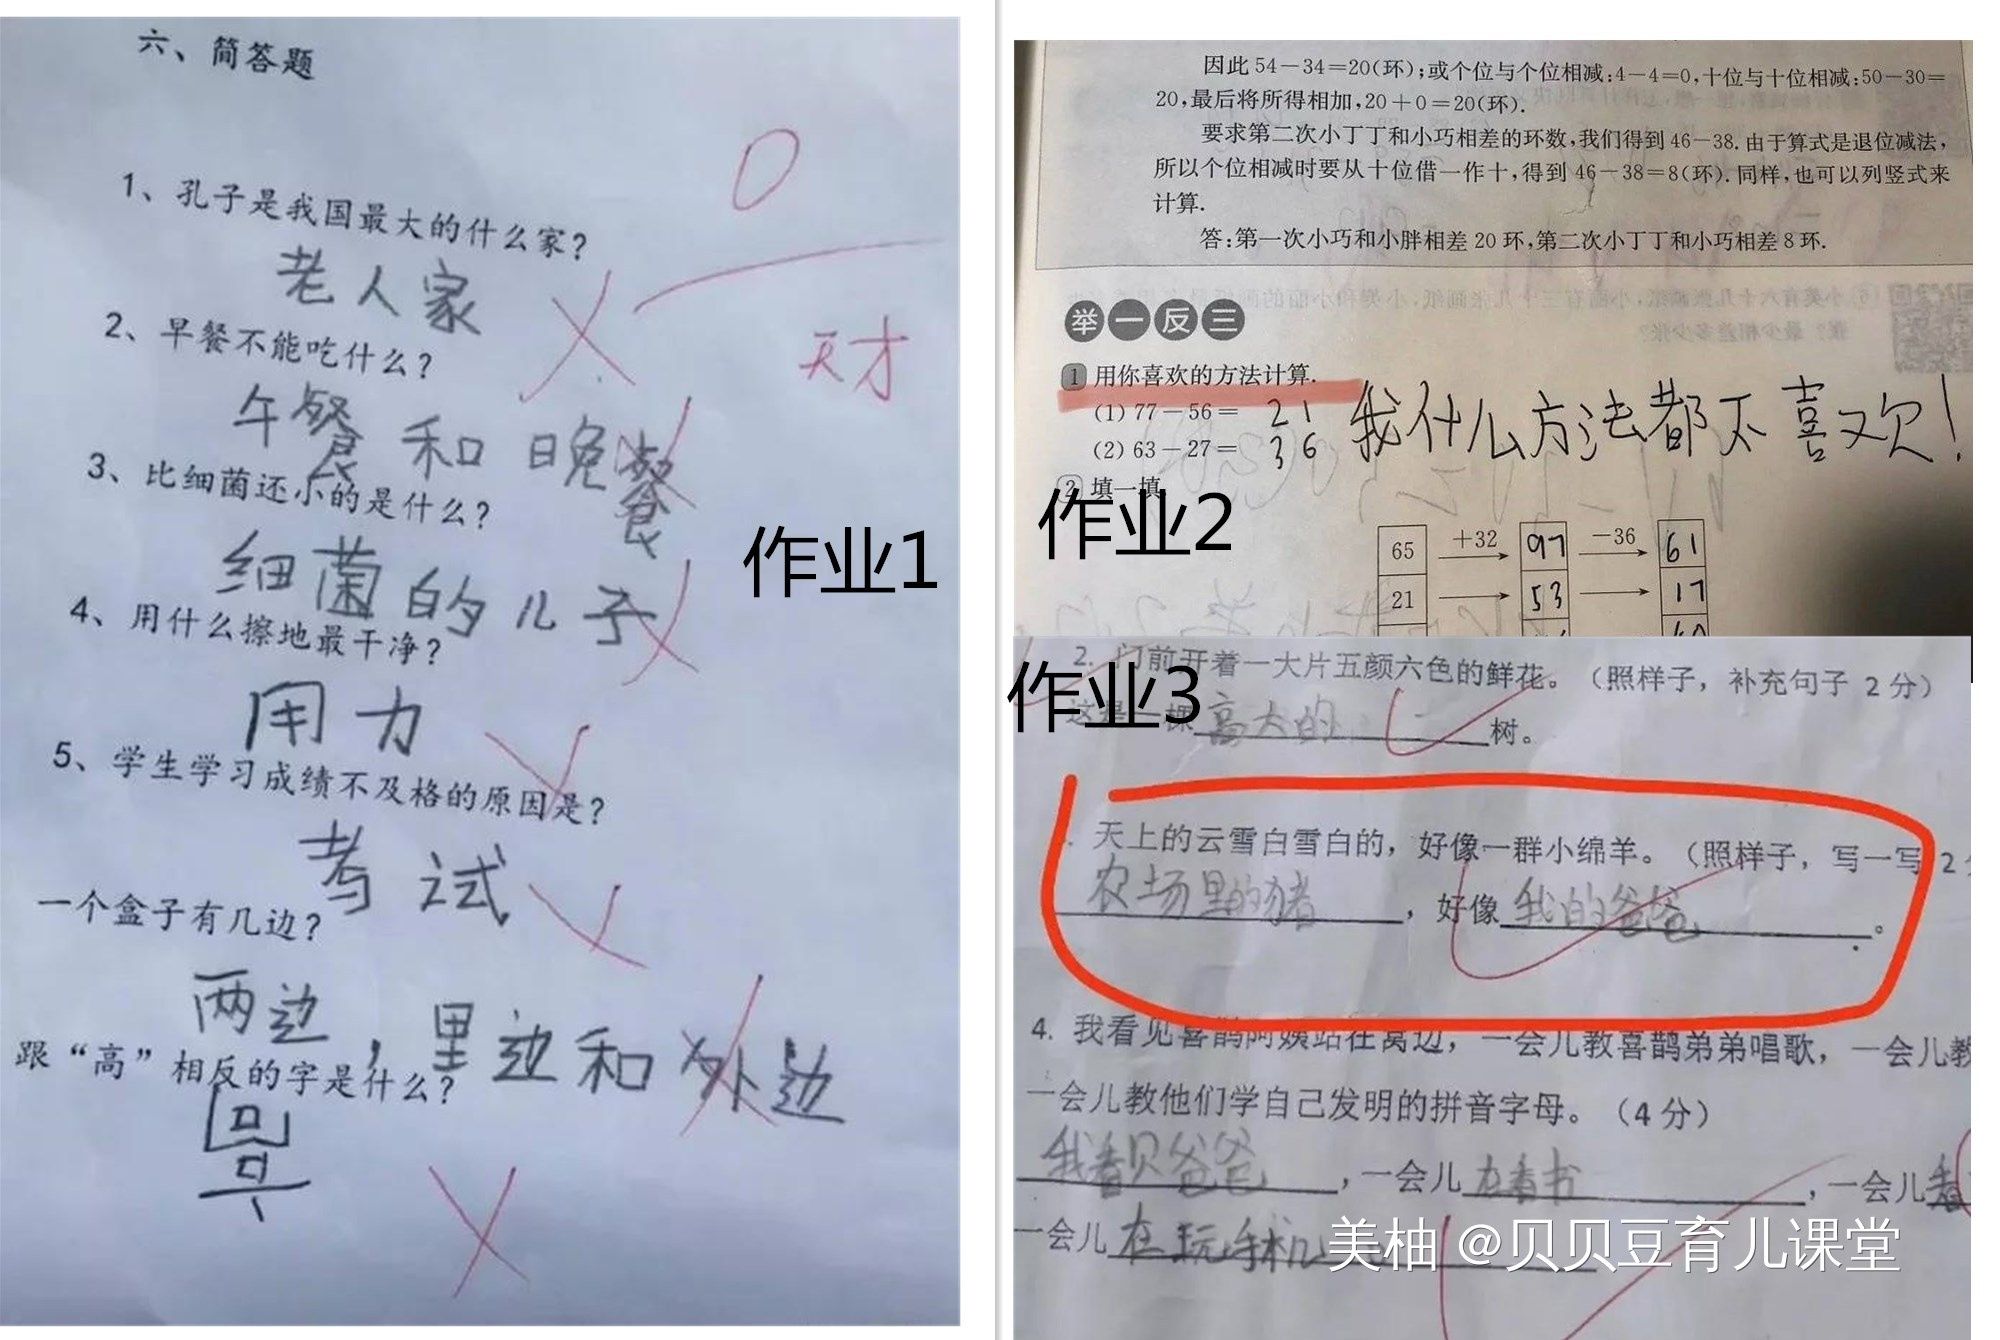 六、简答题
0
天才
1、孔子是我国最大的什么家？
老人家
2、早餐不能吃什么？
午餐和晚餐
3、比细菌还小的是什么？
细菌的儿子
4、用什么擦地最干净？
用力
5、学生学习成绩不及格的原因是？
考试
一个盒子有几边？
两边，里边和外边
跟“高”相反的字是什么？
作业1
因此54－34＝20(环);或个位与个位相减:4－4＝0,十位与十位相减:50－30＝
20,最后将所得相加,20＋0＝20(环).
要求第二次小丁丁和小巧相差的环数,我们得到46－38.由于算式是退位减法,
所以个位相减时要从十位借一作十,得到46－38＝8(环).同样,也可以列竖式来
计算.
答:第一次小巧和小胖相差20环,第二次小丁丁和小巧相差8环.
举一反三
1 用你喜欢的方法计算.
(1) 77－56＝ 21
(2) 63－27＝ 36
我什么方法都不喜欢！
2 填一填
作业2
65 +32 97 －36 61
21 53 17
作业3
2. 门前开着一大片五颜六色的鲜花。（照样子，补充句子 2分）
这是一棵高大的树。
天上的云雪白雪白的，好像一群小绵羊。（照样子，写一写 2
农场里的猪，好像我的爸爸。
4. 我看见喜鹊阿姨站在窝边，一会儿教喜鹊弟弟唱歌，一会儿教
一会儿教他们学自己发明的拼音字母。（4分）
我看见爸爸，一会儿在看书，一会儿看
一会儿在玩手机
美柚 @贝贝豆育儿课堂